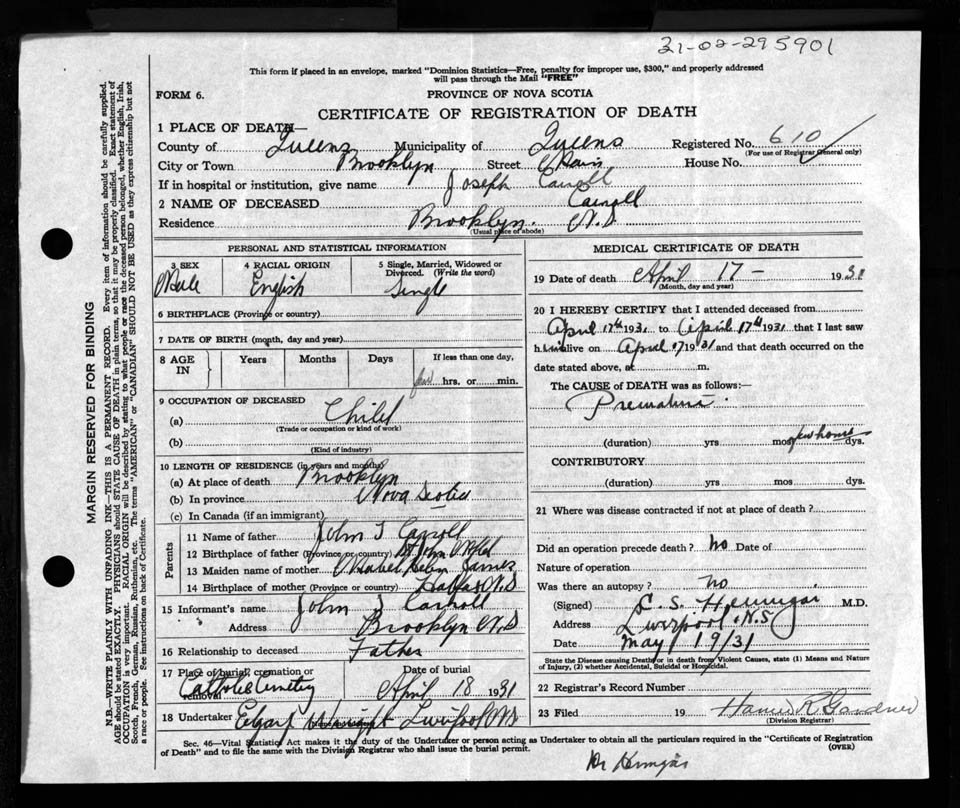 21-02-295901
This form if placed in an envelope, marked "Dominion Statistics—Free, penalty for improper use, $300," and properly addressed
will pass through the Mail "FREE"
FORM 6.
PROVINCE OF NOVA SCOTIA
CERTIFICATE OF REGISTRATION OF DEATH
1 PLACE OF DEATH—
County of Queens Municipality of Queens Registered No. 610
(For use of Registrar General only)
City or Town Brooklyn Street House No.
If in hospital or institution, give name Joseph Carroll
2 NAME OF DECEASED Carroll
Residence Brooklyn. N.S
(Usual place of abode)
PERSONAL AND STATISTICAL INFORMATION
3 SEX
Male
4 RACIAL ORIGIN
English
5 Single, Married, Widowed or
Divorced. (Write the word)
Single
6 BIRTHPLACE (Province or country)
7 DATE OF BIRTH (month, day and year)
8 AGE IN
Years Months Days
If less than one day,
few hrs. or min.
9 OCCUPATION OF DECEASED
(a) Child
(Trade or occupation or kind of work)
(b)
(Kind of industry)
10 LENGTH OF RESIDENCE (in years and months)
(a) At place of death Brooklyn
(b) In province Nova Scotia
(c) In Canada (if an immigrant)
Parents
11 Name of father John J Carroll
12 Birthplace of father (Province or country) St John Nfld
13 Maiden name of mother Mabel Helen James
14 Birthplace of mother (Province or country) Halifax N.S
15 Informant's name John J Carroll
Address Brooklyn N.S
16 Relationship to deceased Father
17 Place of burial, cremation or
removal Catholic Cemetry
Date of burial
April 18 1931
18 Undertaker Edgar Wright Liverpool N.S
MEDICAL CERTIFICATE OF DEATH
19 Date of death April 17 — 1931
(Month, day and year)
20 I HEREBY CERTIFY that I attended deceased from
April 17th 1931 to April 17th 1931 that I last saw
him alive on April 17 1931 and that death occurred on the
date stated above, at m.
The CAUSE of DEATH was as follows:—
(duration) yrs mos few hours dys.
CONTRIBUTORY
(duration) yrs mos dys.
21 Where was disease contracted if not at place of death?
Did an operation precede death? no Date of
Nature of operation
Was there an autopsy? no
(Signed) M.D.
Address Liverpool N.S
Date May 19/31
State the Disease causing Death, or in death from Violent Causes, state (1) Means and Nature
of Injury, (2) whether Accidental, Suicidal or Homicidal.
22 Registrar's Record Number
23 Filed 19 R Gardner
(Division Registrar)
Sec. 46—Vital Statistics Act makes it the duty of the Undertaker or person acting as Undertaker to obtain all the particulars required in the "Certificate of Registration
of Death" and to file the same with the Division Registrar who shall issue the burial permit.
(OVER)
MARGIN RESERVED FOR BINDING
N.B.—WRITE PLAINLY WITH UNFADING INK—THIS IS A PERMANENT RECORD. Every item of information should be carefully supplied.
AGE should be stated EXACTLY. PHYSICIANS should STATE CAUSE OF DEATH in plain terms, so that it may be properly classified. Exact statement of
OCCUPATION is very important. RACIAL ORIGIN will be described by stating to what people or race the deceased person belonged, whether English, Irish,
Scotch, French, German, Russian, Ruthenian, etc. The terms "AMERICAN" or "CANADIAN" SHOULD NOT BE USED as they express citizenship but not
a race or people. See instructions on back of Certificate.